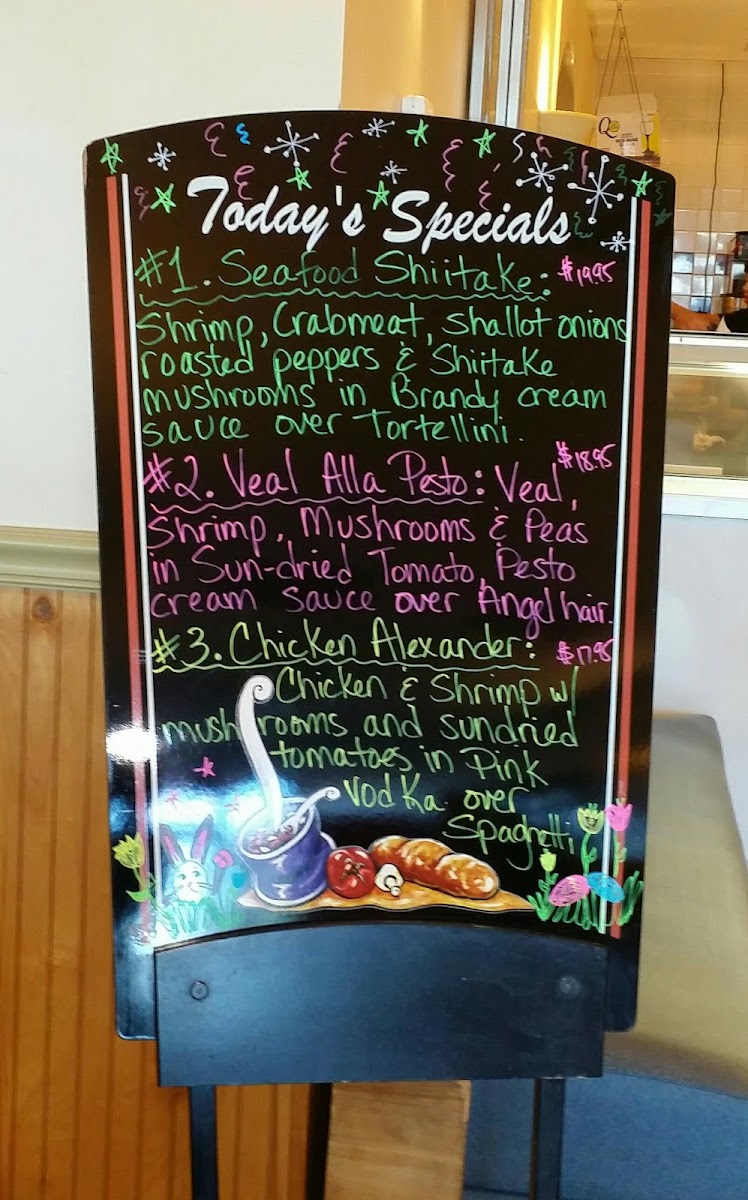 Today's Specials
#1. Seafood Shiitake: $19.95
Shrimp, Crabmeat, Shallot onions
roasted peppers & Shiitake
mushrooms in Brandy cream
sauce over Tortellini.
#2. Veal Alla Pesto: Veal, $18.95
Shrimp, Mushrooms & Peas
in Sun-dried Tomato, Pesto
cream sauce over Angel hair.
#3. Chicken Alexander: $17.95
Chicken & Shrimp w/
mushrooms and sundried
tomatoes in Pink
Vodka over
Spaghetti